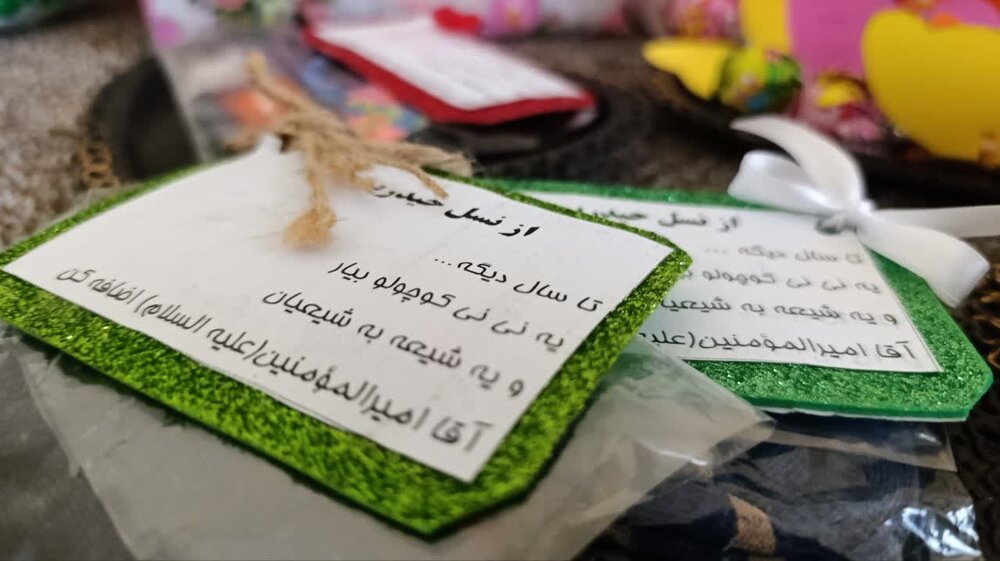 از نسل حیدر
تا سال دیگه ...
یه نی نی کوچولو بیار
و یه شیعه به شیعیان
آقا امیرالمؤمنین(علیه السلام) اضافه کن
از نسل حیدر
تا سال دیگه ...
یه نی نی کوچولو
و یه شیعه به شیعیا
آقا امیرالمؤمنین(علیه